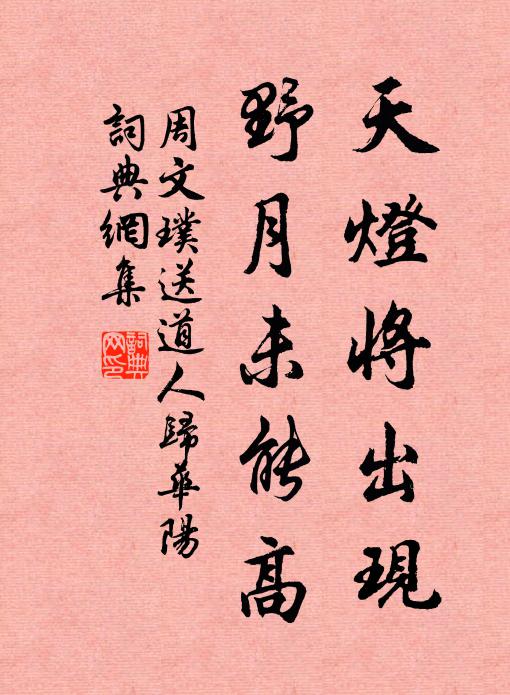 天燈將出現
野月未能高
周文璞送道人歸華陽
詞典網集
詞典網印